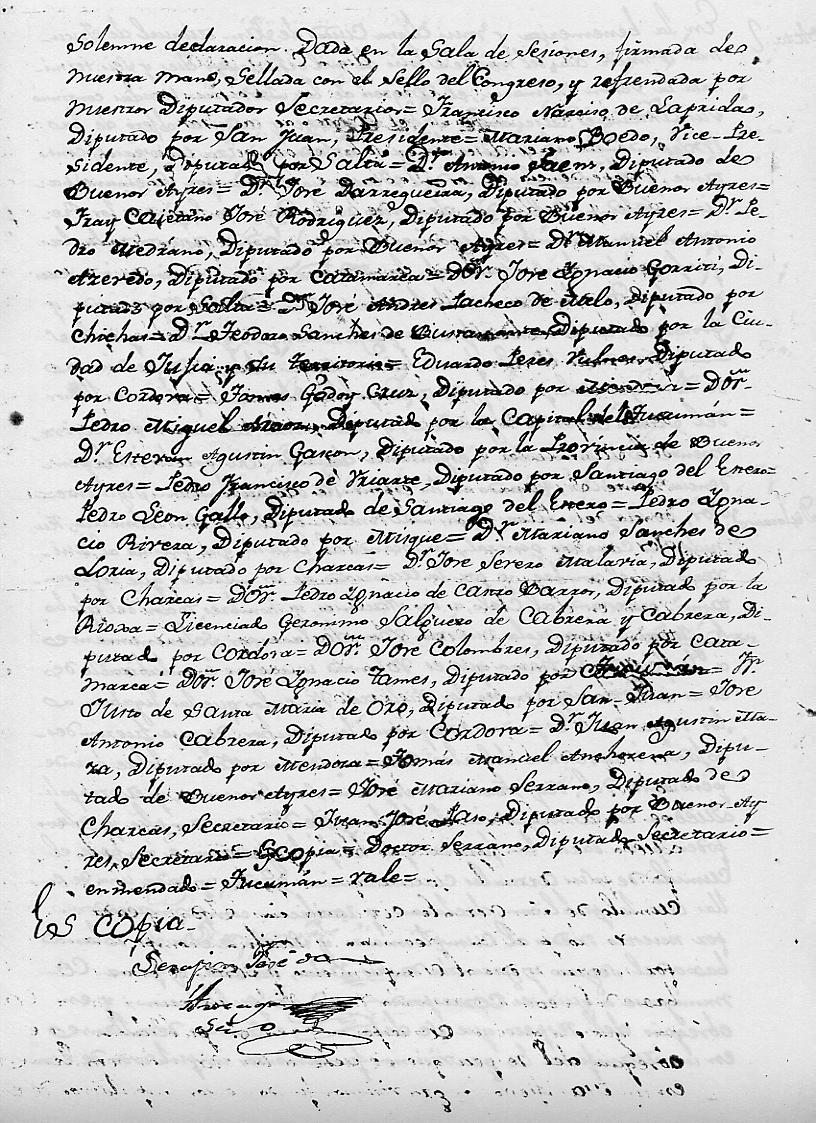 Solemne declaracion. Dada en la Sala de Sesiones, firmada de
nuestra mano, Sellada con el Sello del Congreso, y refrendada por
nuestros Diputados Secretarios = Francisco Narciso de Laprida,
Diputado por San Juan, Presidente = Mariano Boedo, Vice-Pre-
sidente, Diputado por Salta = Dr. Antonio Saens, Diputado de
Buenos Ayres = Dr. José Darregueira, Diputado por Buenos Ayres =
Fray Cayetano José Rodriguez, Diputado por Buenos Ayres = Dr. Pe-
dro Medrano, Diputado por Buenos Ayres = Dr. Manuel Antonio
Azevedo, Diputado por Catamarca = Dor. José Ignacio Gorriti, Di-
putado por Salta = Dr. José Andres Pacheco de Melo, Diputado por
Chichas = Dr. Teodoro Sanches de Bustamante, Diputado por la Ciu-
dad de Jujui y su territorio = Eduardo Peres Vulnes, Diputado
por Cordova = Tomas Godoy Cruz, Diputado por Mendoza = Dor.
Pedro Miguel Araoz, Diputado por la Capital del Tucumán =
Dr. Estevan Agustin Gascon, Diputado por la Provincia de Buenos
Ayres = Pedro Francisco de Uriarte, Diputado por Santiago del Estero =
Pedro Leon Gallo, Diputado de Santiago del Estero = Pedro Igna-
cio Rivera, Diputado por Misque = Dr. Mariano Sanches de
Loria, Diputado por Charcas = Dr. José Severo Malavia, Diputado
por Charcas = Dor. Pedro Ignacio de Castro Barros, Diputado por la
Rioxa = Licenciado Geronimo Salguero de Cabrera y Cabrera, Di-
putado por Cordova = Dor. José Colombres, Diputado por Cata-
marca = Dor. José Ignacio Tames, Diputado por Tucumán = Fr.
Justo de Santa Maria de Oro, Diputado por San Juan = José
Antonio Cabrera, Diputado por Cordova = Dr. Juan Agustin Ma-
za, Diputado por Mendoza = Tomás Manuel Anchorena, Dipu-
tado de Buenos Ayres = José Mariano Serrano, Diputado de
Charcas, Secretario = Juan José Paso, Diputado por Buenos Ay
res, Secretario = Es copia = Doctor Serrano, Diputado Secretario =
enmendado = Tucumán = vale =
Es copia
Serapion José de